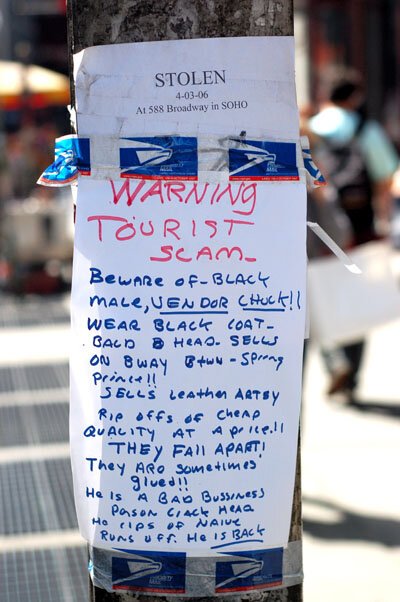 STOLEN
4-03-06
At 588 Broadway in SOHO
WARNING
TOURIST
SCAM-
BEWARE OF-BLACK
MALE, VENDOR CHUCK!!
WEAR BLACK COAT-
BALD HEAD-SELLS
ON BWAY Btwn-SPRING
PRINCE!!
SELLS LEATHER ARTSY
RIP OFFS OF CHEAP
QUALITY AT A PRICE.!!
THEY FALL APART!
THEY ARO SOMETIMES
glued!!
HE IS A BAD BUSSINESS
PORSON CRACK HEAD
HO RIPS OF NAIVE
RUNS OFF. HE IS BACK